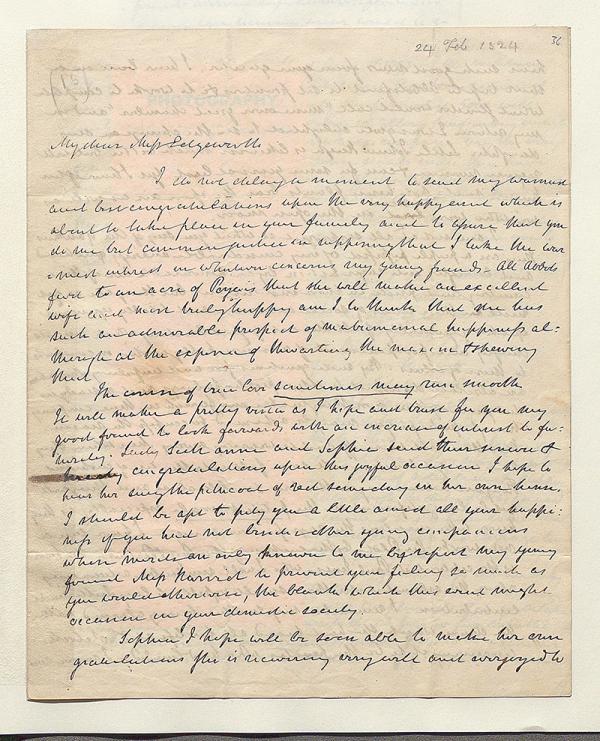 24 Feb 1824
36
My dear Miss Edgeworth
I do not delay a moment to send my warmest
and best congratulations upon the very happy event which is
about to take place in your family and to assure that you
do me but common justice in supposing that I take the war
=mest interest in whatever concerns my young friends - All Abbots
ford to an acre of that she will make an excellent
wife and most truly happy am I to think that she has
such an admirable prospect of matrimonial happiness al=
though at the expence of thwarting the maxim & shewing
that
The course of true love sometimes may run smooth
It will make a pretty vista as I hope and trust for you my
good friend to look forwards with an increase of interest to fu=
turity. Lady Scott Anne and Sophia send their sincere &
hearty congratulations upon this joyful occasion I hope to
hear her sing the petticoat of red some day in her own house.
I should be apt to pity you a little amid all your happi=
ness if you had not besides other young companions
whose merits are only known to me by report my young
friend Miss Harriet to prevent your feeling so much as
you would otherwise, the blank which this event might
occasion in your domestic society.
Sophia I hope will be soon able to make her own
gratulations She is recovering very well and overjoyed to